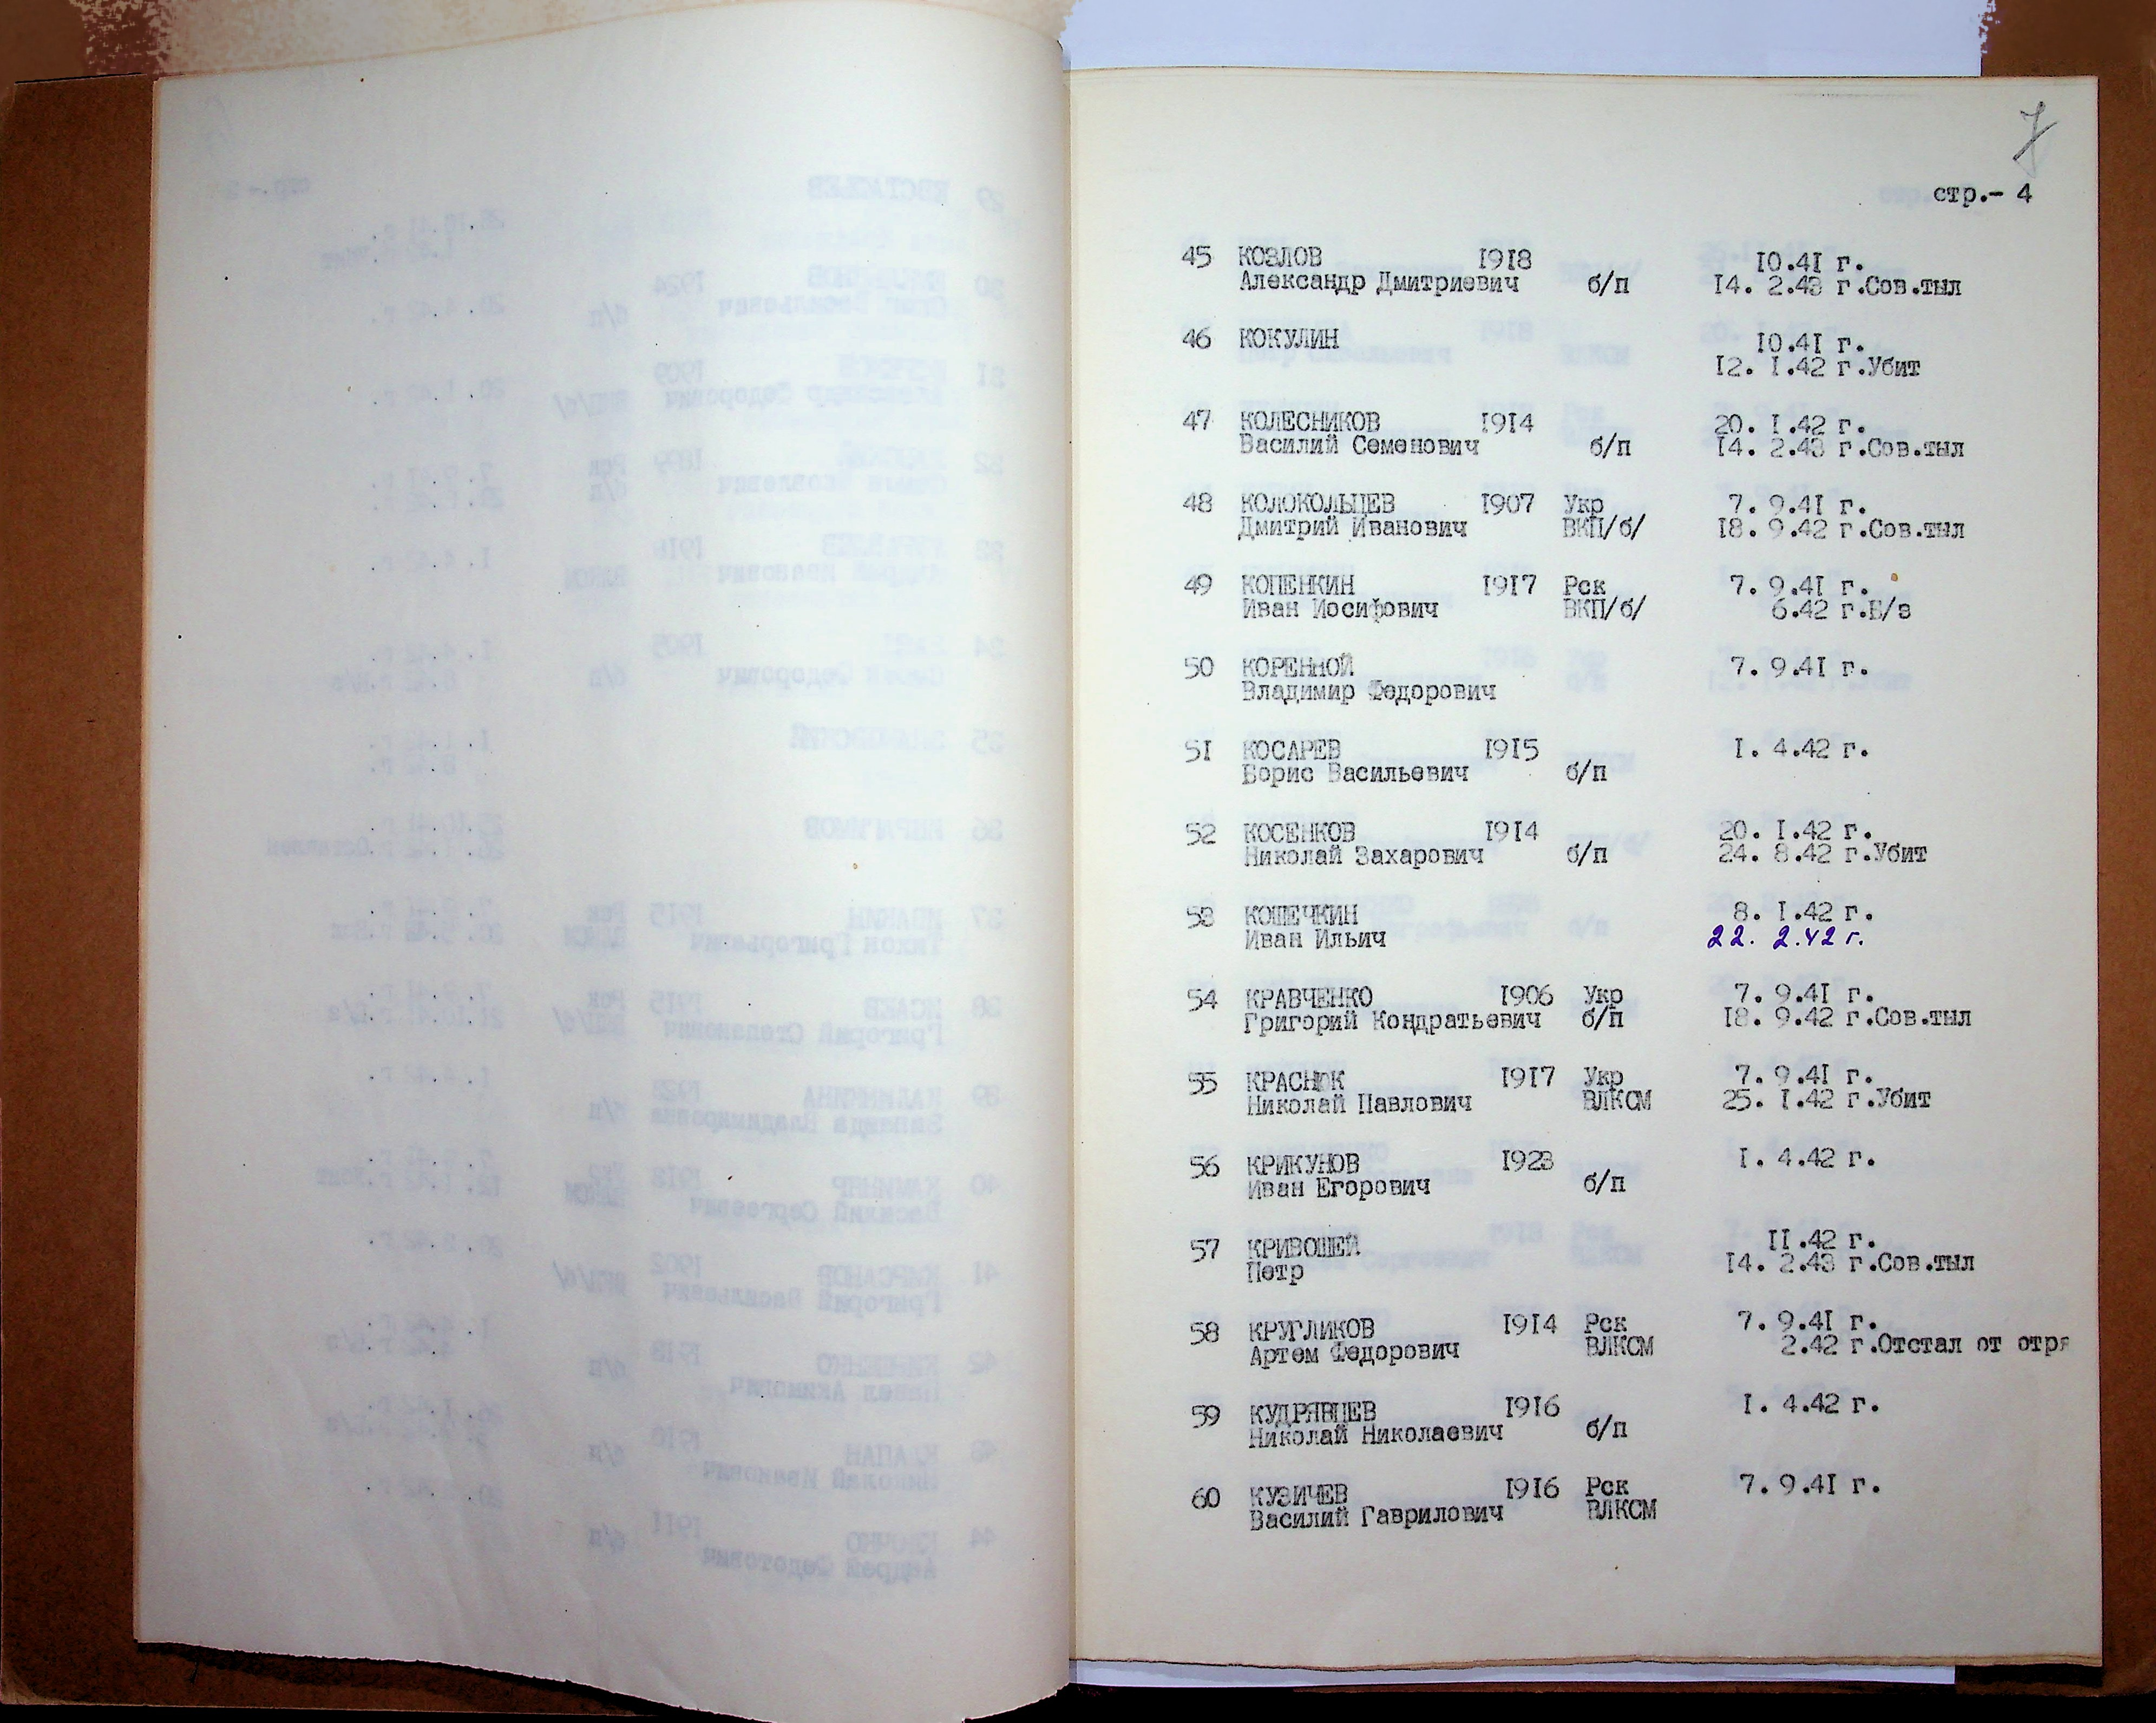 7
стр.- 4
45 КОЗЛОВ 1918 10.41 г.
Александр Дмитриевич б/п 14. 2.43 г.Сов.тыл
46 КОКУЛИН 10.41 г.
12. 1.42 г.Убит
47 КОЛЕСНИКОВ 1914 20. 1.42 г.
Василий Семенович б/п 14. 2.43 г.Сов.тыл
48 КОЛОКОЛЬЦЕВ 1907 Укр 7. 9.41 г.
Дмитрий Иванович ВКП/б/ 18. 9.42 г.Сов.тыл
49 КОПЕНКИН 1917 Рск 7. 9.41 г.
Иван Иосифович ВКП/б/ 6.42 г.Б/з
50 КОРЕННОЙ 7. 9.41 г.
Владимир Федорович
51 КОСАРЕВ 1915 1. 4.42 г.
Борис Васильевич б/п
52 КОСЕНКОВ 1914 20. 1.42 г.
Николай Захарович б/п 24. 8.42 г.Убит
53 КОШЕЧКИН 8. 1.42 г.
Иван Ильич 22. 2.42 г.
54 КРАВЧЕНКО 1906 Укр 7. 9.41 г.
Григорий Кондратьевич б/п 18. 9.42 г.Сов.тыл
55 КРАСНЮК 1917 Укр 7. 9.41 г.
Николай Павлович ВЛКСМ 25. 1.42 г.Убит
56 КРИКУНОВ 1923 1. 4.42 г.
Иван Егорович б/п
57 КРИВОШЕЙ 11.42 г.
Петр 14. 2.43 г.Сов.тыл
58 КРУГЛИКОВ 1914 Рск 7. 9.41 г.
Артем Федорович ВЛКСМ 2.42 г.Отстал от отря
59 КУДРЯВЦЕВ 1916 1. 4.42 г.
Николай Николаевич б/п
60 КУЗИЧЕВ 1916 Рск 7. 9.41 г.
Василий Гаврилович ВЛКСМ